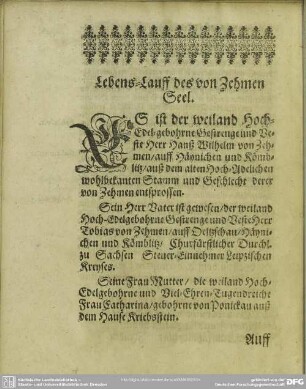 Lebens-Lauff des von Zehmen
Seel.
ES ist der weiland Hoch-
Edel-gebohrne Gestrenge und Ve-
ste Herr Hanß Wilhelm von Zeh-
men/auff Häynichen und Kömb-
litz/auß dem alten Hoch-Adelichen
wohlbekanten Stamm und Geschlecht derer
von Zehmen entsprossen.
Sein Herr Vater ist gewesen/der weiland
Hoch-Edelgebohrne Gestrenge und Veste Herr
Tobias von Zehmen/auff Oeltzschau/Häyni-
chen und Kömblitz/ Churfürstlicher Durchl.
zu Sachsen Steuer-Einnehmer Leipzischen
Kreyses.
Seine Frau Mutter/ die weiland Hoch-
Edelgebohrne und Viel-Ehren-Tugendreiche
Frau Catharina/gebohrne von Ponickau auß
dem Hause Kriebstein.
Auff